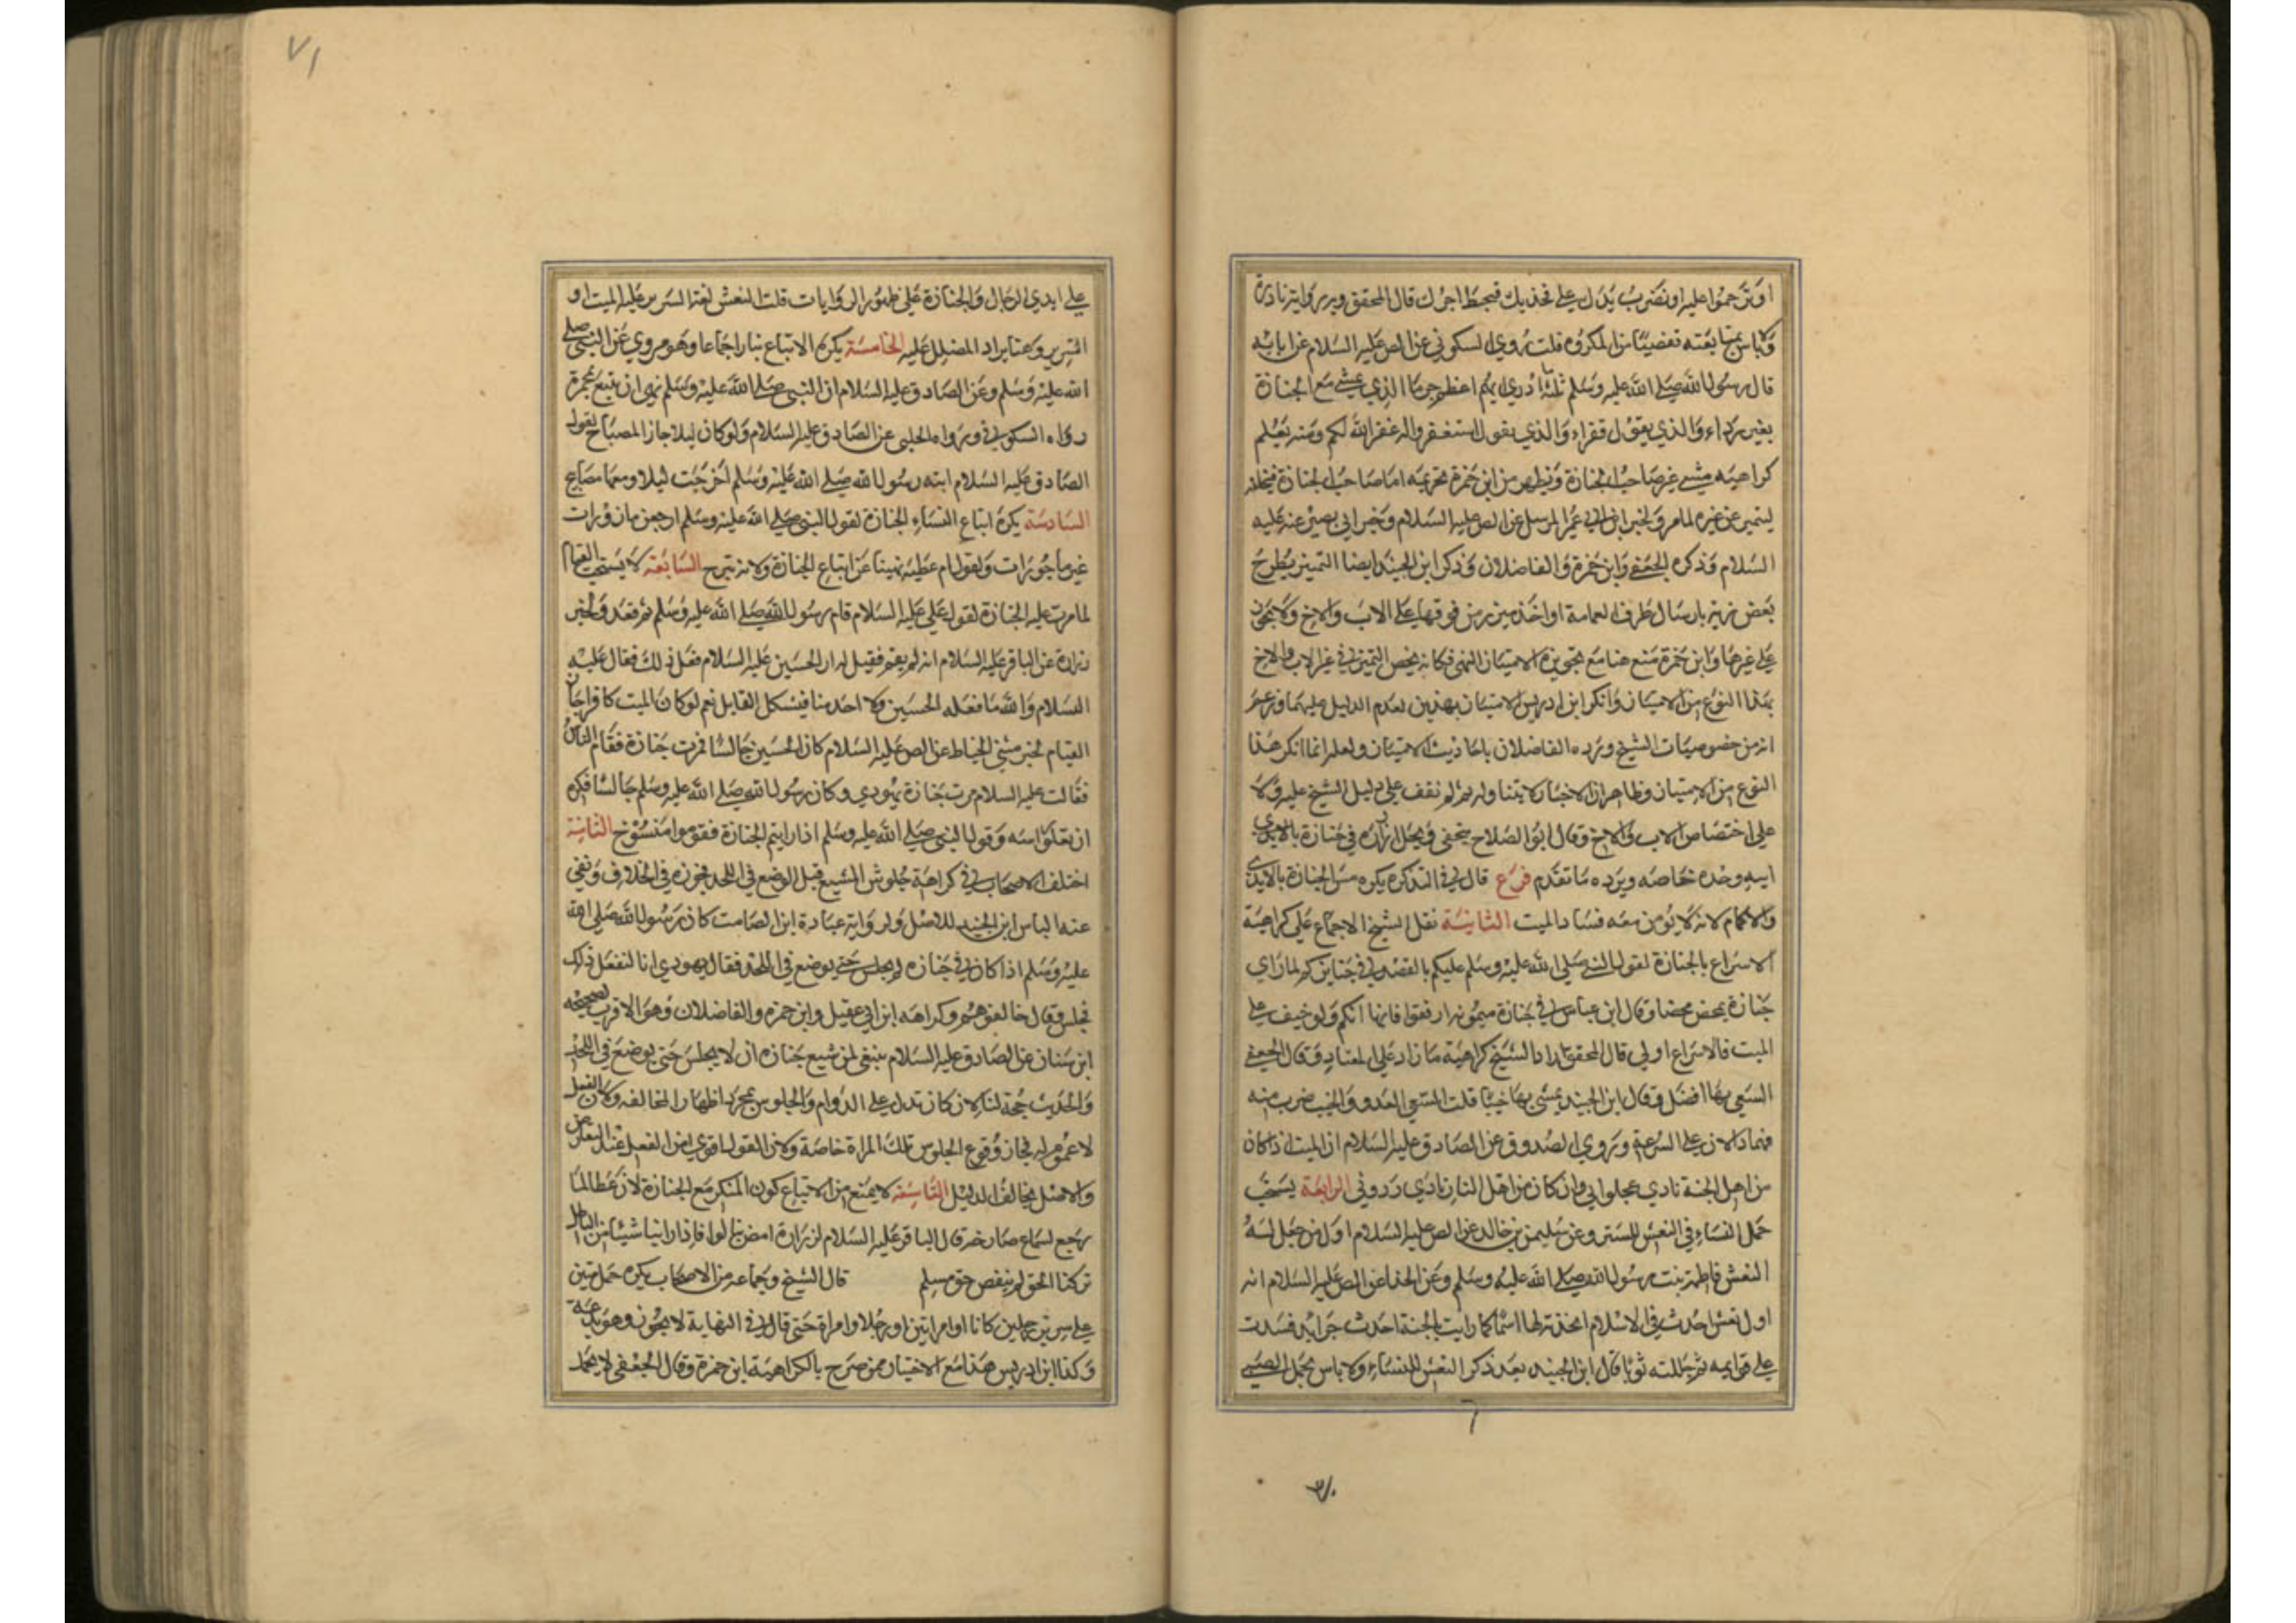 او ترحموا عليه او تضرب يدك على فخذيك فيحبط اجرك قال المحقق وبرواية نادرة
ولا باس بمتابعته تفصيا من المكروه قلت روى السكوني عن الص عليه السلام عن ابائه
قال رسول الله صلى الله عليه وسلم ثلثه ما ادري ايهم اعظم جرما الذي يمشي مع الجنازة
بغير رداء والذي يقول قفوا والذي يقول استغفروا له غفر الله لكم ومنه يعلم
كراهيه مشي غير صاحب الجنازة ويظهر من ابن حمزة تحريمه اما صاحب الجنازة فيخلعه
ليتميز عن غيره لما مر ولخبر ابن ابي عمير المرسل عن الص عليه السلام وخبر ابي بصير عنه عليه
السلام وذكره الجعفي وابن حمزة والفاضلان وذكر ابن الجنيد ايضا التميز بطرح
بعض زيه بارسال طرف العمامة او اخذ ميزر من فوقها على الاب والاخ ولا يجوز
على غيرهما وابن حمزة منع هنا مع تجويزه الامتياز النهي فكانه يخص التميز في غير الاب والاخ
بهذا النوع من الامتياز وانكر ابن ادريس الامتياز بهذين لعدم الدليل عليهما وزعم
انه من خصوصيات الشيخ ورده الفاضلان باحاديث الامتياز ولعله انما انكر هذا
النوع من الامتياز وظاهر ان الاخبار لا يتناوله ثم لم نقف على دليل الشيخ عليه ولا
على اختصاص الاب والاخ وقال ابو الصلاح يتحفى ويحل ازراره في جنازة
ابيه وجده خاصه ويرده ما تقدم فرع قال في التذكرة يكره مس الجنازة بالايدي
والاكمام لانه لا يؤمن معه فساد الميت الثانية نقل الشيخ الاجماع على كراهية
الاسراع بالجنازة لقول النبي صلى الله عليه وسلم عليكم بالقصد في جنايزكم لما راى
جنازة يمخض مخضا وقال ابن عباس في جنازة ميمونه ارفقوا فانها امكم ولو خيف على
الميت فالاسراع اولى قال المحقق اراد الشيخ كراهية ما زاد على المعتاد وقال الجعفي
السعي بها افضل وقال ابن الجنيد يمشي بها خببا قلت السعي العدو والخبب ضرب منه
فهما دالان على السرعة وروى الصدوق عن الصادق عليه السلام ان الميت اذا كان
من اهل الجنة نادى عجلوا بي وان كان من اهل النار نادى ردوني الرابعة يستحب
حمل النساء في النعش للستر وعن سليمن بن خالد عن الص عليه السلام اول من جعل له
النعش فاطمة بنت رسول الله صلى الله عليه وسلم وعن الحذا عن الص عليه السلام انه
اول نعش احدث في الاسلام اتخذته لها اسماء كما رايت بالحبشة احدث جرايد فشدت
على قوايمه ثم جللته ثوبا قال ابن الجنيد بعد ذكر النعش للنساء ولا باس بحمل الصبي
على ايدي الرجال والجنازة على ظهور الروايات قلت النعش لغة السرير عليه الميت او
السرير وهنا يراد المظلل عليه الخامسة يكره الاتباع بنار اجماعا وهو مروي عن النبي صلى
الله عليه وسلم وعن الصادق عليه السلام ان النبي صلى الله عليه وسلم نهى ان تتبع بمجمرة
رواه السكوني ورواه الحلبي عن الصادق عليه السلام ولو كان ليلا جاز المصباح لقول
الصادق عليه السلام ابنة رسول الله صلى الله عليه وسلم اخرجت ليلا ومعها مصابيح
السادسة يكره اتباع النساء الجنازة لقول النبي صلى الله عليه وسلم ارجعن مازورات
غير ماجورات ولقول ام عطية نهينا عن اتباع الجنازة ولانه تبرج السابعة لا يستحب القيام
لمن مرت عليه الجنازة لقول علي عليه السلام قام رسول الله صلى الله عليه وسلم ثم قعد ولخبر
زرارة عن الباقر عليه السلام انه لم يقم فقيل له ان الحسين عليه السلام فعل ذلك فقال عليه
السلام والله ما فعله الحسين ولا احد منا فيشكل القايل نعم لو كان الميت كافرا جاز
القيام لخبر مثنى الحناط عن الص عليه السلام كان الحسين جالسا فمرت جنازة فقام الناس
فقالت عليه السلام مرت جنازة يهودي وكان رسول الله صلى الله عليه وسلم جالسا فكره
ان تعلو راسه وقول النبي صلى الله عليه وسلم اذا رايتم الجنازة فقوموا منسوخ الثامنة
اختلف الاصحاب في كراهية جلوس المشيع قبل الوضع في اللحد فجوزه في الخلاف ونفى
عنه الباس ابن الجنيد للاصل ولرواية عبادة ابن الصامت كان رسول الله صلى الله
عليه وسلم اذا كان في جنازه لم يجلس حتى يوضع في اللحد فقال يهودي انا لنفعل ذلك
فجلس وقال خالفوهم وكراهه ابن ابي عقيل وابن حمزه والفاضلان وهو الاقرب لصحيحه
ابن سنان عن الصادق عليه السلام ينبغي لمن شيع جنازه ان لا يجلس حتى يوضع في اللحد
والحديث حجة لنا لان كان تدل على الدوام والجلوس بمجرد اظهار المخالفه ولان الفعل
لا عموم له فجاز وقوع الجلوس تلك المرة خاصة ولان القول اقوى من الفعل عند التعارض
والاصل يخالف الدليل التاسعه لا يمنع من الاتباع كون المنكر مع الجنازة لان عطا لما
رجع لسماع صارخه قال الباقر عليه السلام لزرارة امض بنا لو انا اذا راينا شيئا من الباطل
تركنا الحق لم نقض حق مسلم قال الشيخ وجماعه من الاصحاب يكره حمل ميتين
على سرير رجلين كانا او امراتين او رجلا وامراة حتى قال في النهاية لا يجوز وهو بدعة
وكذا ابن ادريس هذا مع الاختيار ممن صرح بالكراهية ابن حمزة وقال الجعفي لا يحمل
٧١